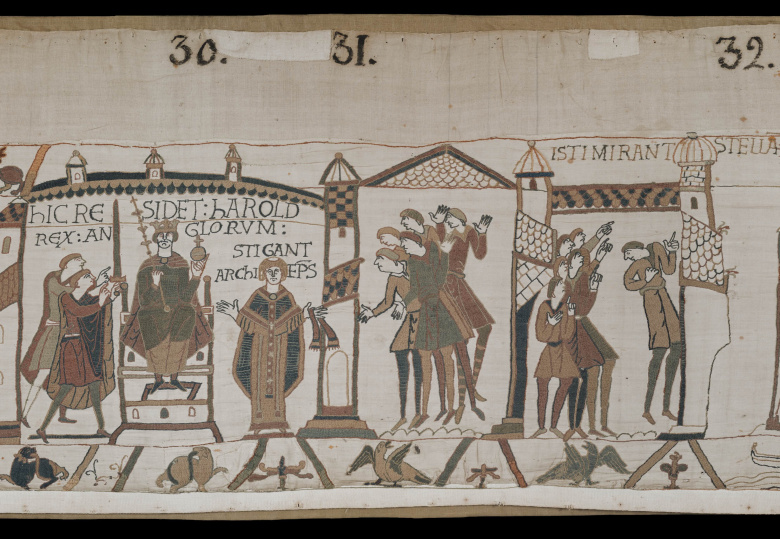 30. 31. 32.
ISTI MIRANT STELLA
HIC RESIDET: hAROLD
REX: ANGLORVM:
STIGANT
ARChIEPS